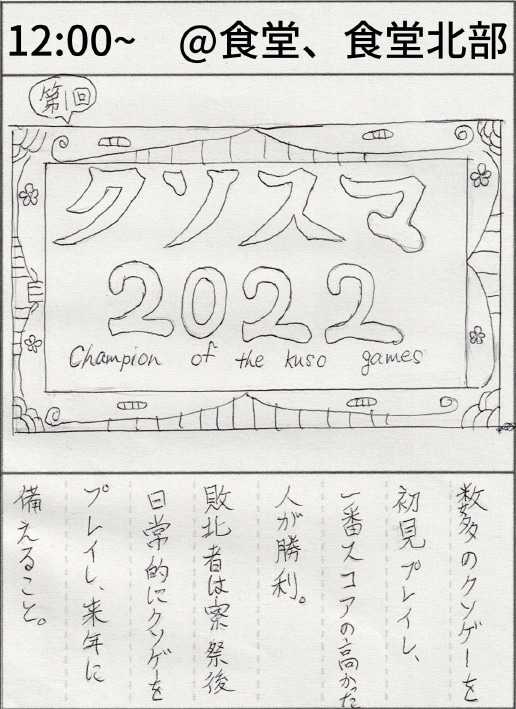 12:00~ @食堂、食堂北部
第1回
クソスマ
2022
Champion of the kuso games
数多のクソゲーを
初見プレイし、
一番スコアの高かった
人が勝利。
敗北者は寮祭後
日常的にクソゲーを
プレイし、来年に
備えること。